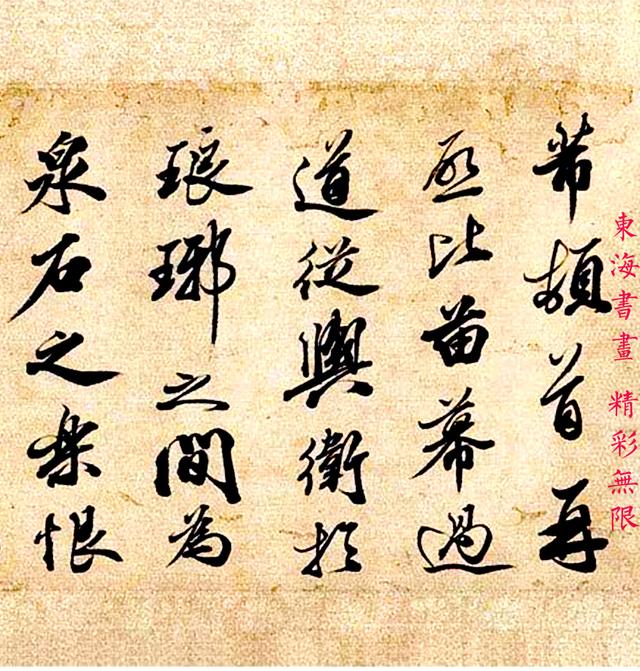 東海書畫 精彩無限
芾頓首再
啓比苗幕過
道從輿衛於
琅琊之間為
泉石之樂恨